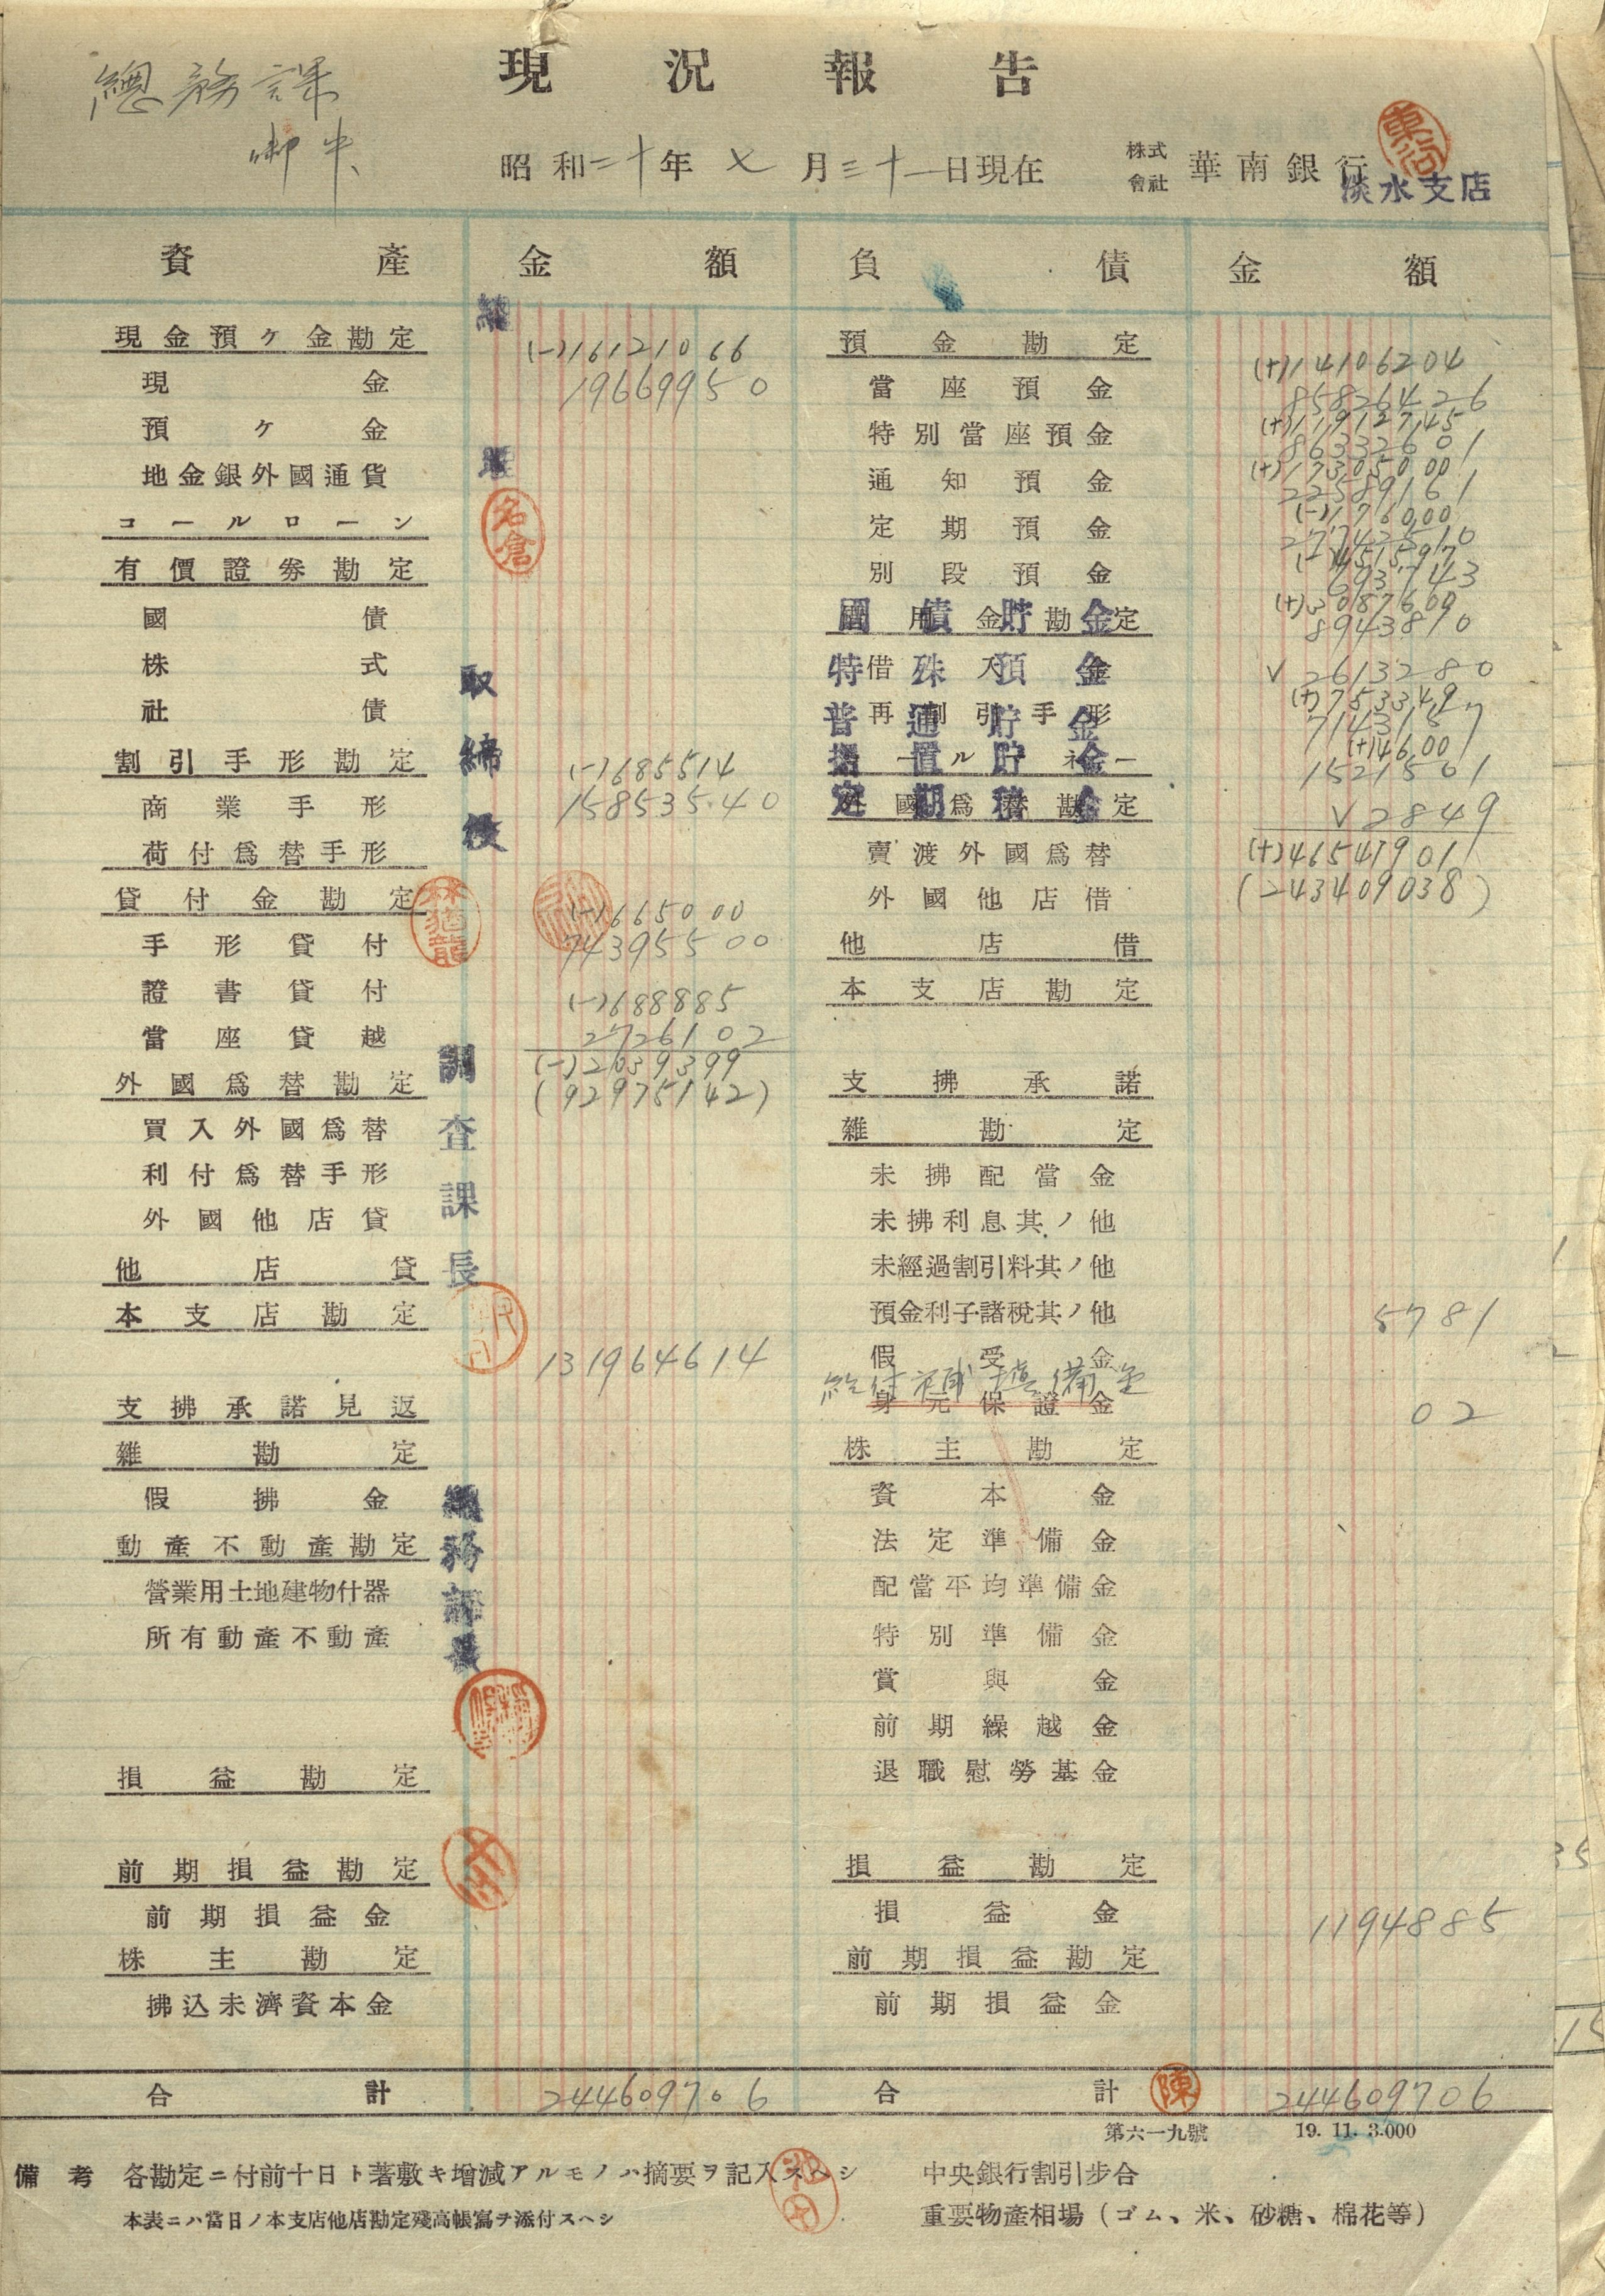 現況報告
總務課
御中
昭和二十年七月三十一日現在
株式會社 華南銀行
淡水支店
資產 金額 負債 金額
現金預ケ金勘定 (-)16121066
現金 19669950
預ケ金
地金銀外國通貨
コールローン
有價證券勘定
國債
株式
社債
割引手形勘定 (-)685514
商業手形 15853540
荷付爲替手形
貸付金勘定 (-)665000
手形貸付 74395500
證書貸付 (-)688885
當座貸越 2726102
外國爲替勘定 (-)2039399
(92975142)
買入外國爲替
利付爲替手形
外國他店貸
他店貸
本支店勘定
131964614
支拂承諾見返
雜勘定
假拂金
動產不動產勘定
營業用土地建物什器
所有動產不動產
損益勘定
前期損益勘定
前期損益金
株主勘定
拂込未濟資本金
合計 244609706
取締役
調查課長
總務課長
名倉
林猶龍
預金勘定 (+)14106204
當座預金 85826426
(+)11912745
特別當座預金 86332601
(+)17305000
通知預金 22589161
(-)176000
定期預金 27742510
別段預金 6937143
(+)3087600
國債貯金 8943810
借入金
特殊預金 V 2613280
(+)7533349
再割引手形
普通貯金 7143157
(+)14600
据置貯金 1521501
外國爲替勘定
定期積金 V 2849
賣渡外國爲替 (+)46541901
外國他店借 (243409038)
他店借
本支店勘定
支拂承諾
雜勘定
未拂配當金
未拂利息其ノ他
未經過割引料其ノ他
預金利子諸稅其ノ他 5781
假受金
給付補塡備金
身元保證金 02
株主勘定
資本金
法定準備金
配當平均準備金
特別準備金
賞與金
前期繰越金
退職慰勞基金
損益勘定
損益金 1194885
前期損益勘定
前期損益金
合計 陳 244609706
第六一九號 19. 11. 3.000
備考 各勘定ニ付前十日ト著敷キ增減アルモノハ摘要ヲ記入スヘシ
本表ニハ當日ノ本支店他店勘定殘高帳寫ヲ添付スヘシ
中央銀行割引步合
重要物產相場（ゴム、米、砂糖、棉花等）